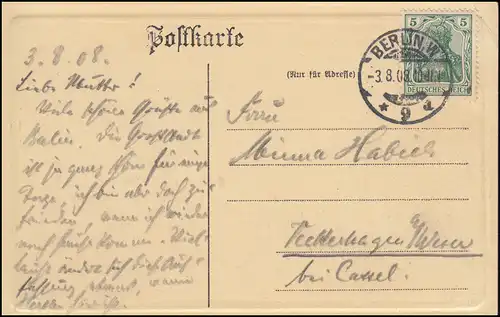 Postkarte
(Nur für Adresse)
5 5
DEUTSCHES REICH
BERLIN. W.
-3.8.08.
* 9 d
3.8.08.
Liebe Mutter!
Viele schöne Grüße aus
Berlin. Die Großstadt
ist ja ganz schön für einige
Tage, ich bin aber doch zu-
frieden, wenn ich wieder
nach Hause komme. Viel-
leicht ändert sich diese Auf-
fassung etwas, wenn
Frau
Minna Habich
Veckerhagen a/Weser
bei Cassel.